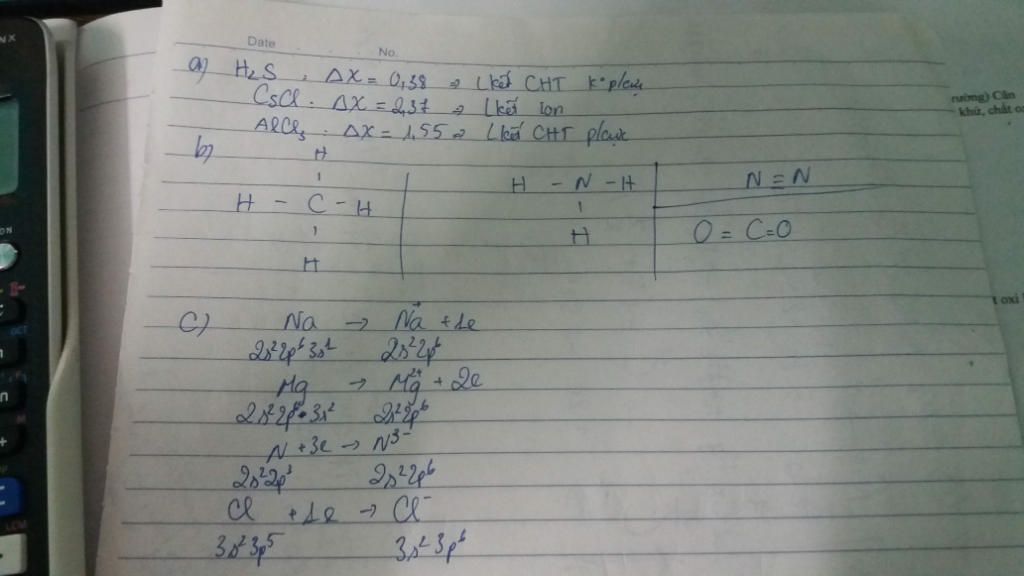 Date No.
a) H₂S : ΔX = 0,38 ⇒ Lkết CHT k° p/cực
CsCl : ΔX = 2,37 ⇒ Lkết ion
AlCl₃ : ΔX = 1,55 ⇒ Lkết CHT p/cực
b)
H
H - C - H
H
H - N - H
H
N ≡ N
O = C = O
c) Na → Na⁺ + 1e
2s²2p⁶3s¹ 2s²2p⁶
Mg → Mg²⁺ + 2e
2s²2p⁶3s² 2s²2p⁶
N + 3e → N³⁻
2s²2p³ 2s²2p⁶
Cl + 1e → Cl⁻
3s²3p⁵ 3s²3p⁶
rường) Cân
khử, chất
t oxi
ON